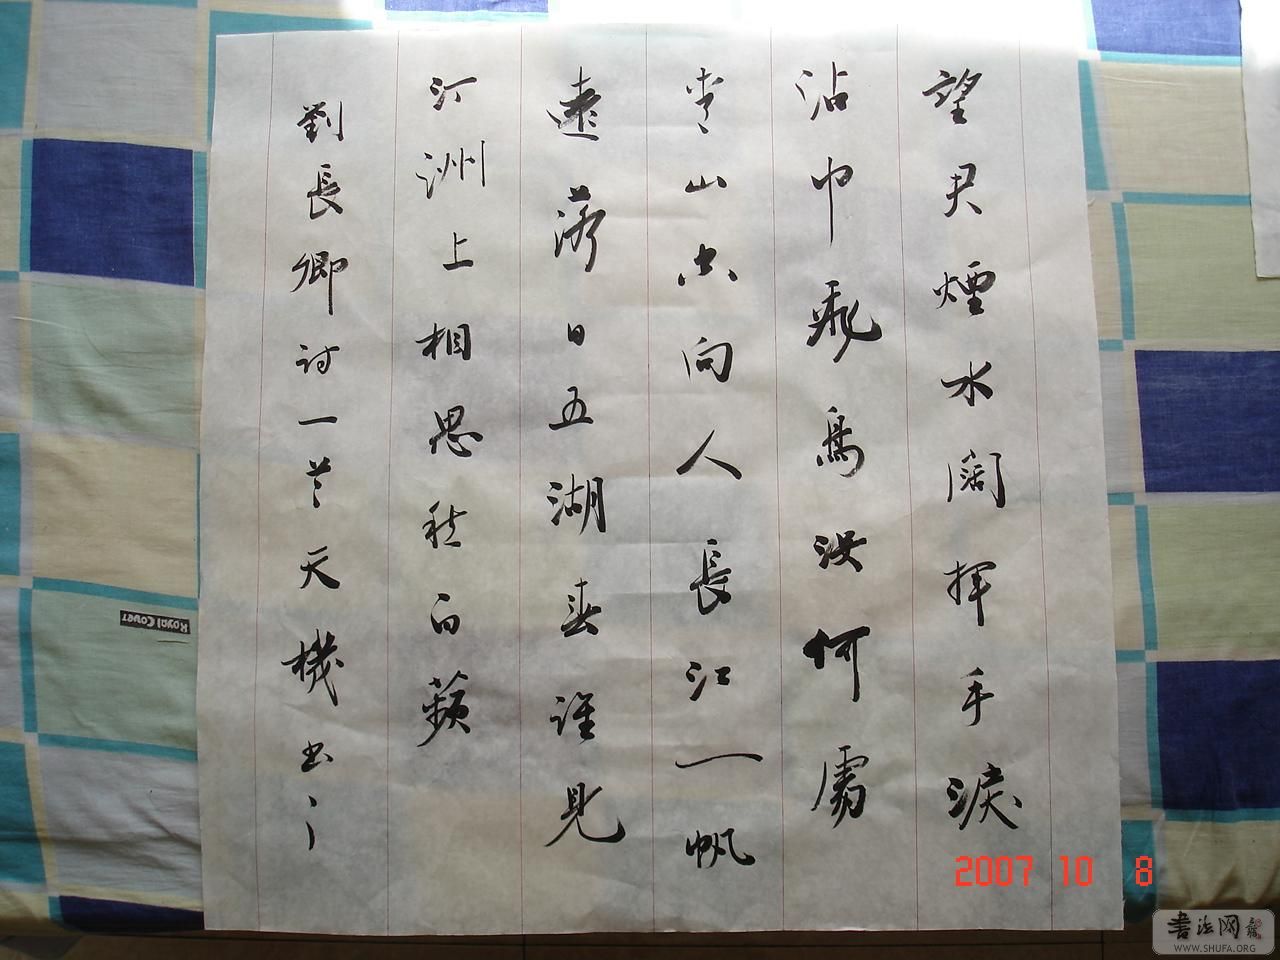 望君煙水闊揮手淚
沾巾飛鳥没何處
青山空向人長江一帆
遠落日五湖春誰見
汀洲上相思愁白蘋
劉長卿詩一首天機书
Royal Cover
2007 10 8
书法网
WWW.SHUFA.ORG